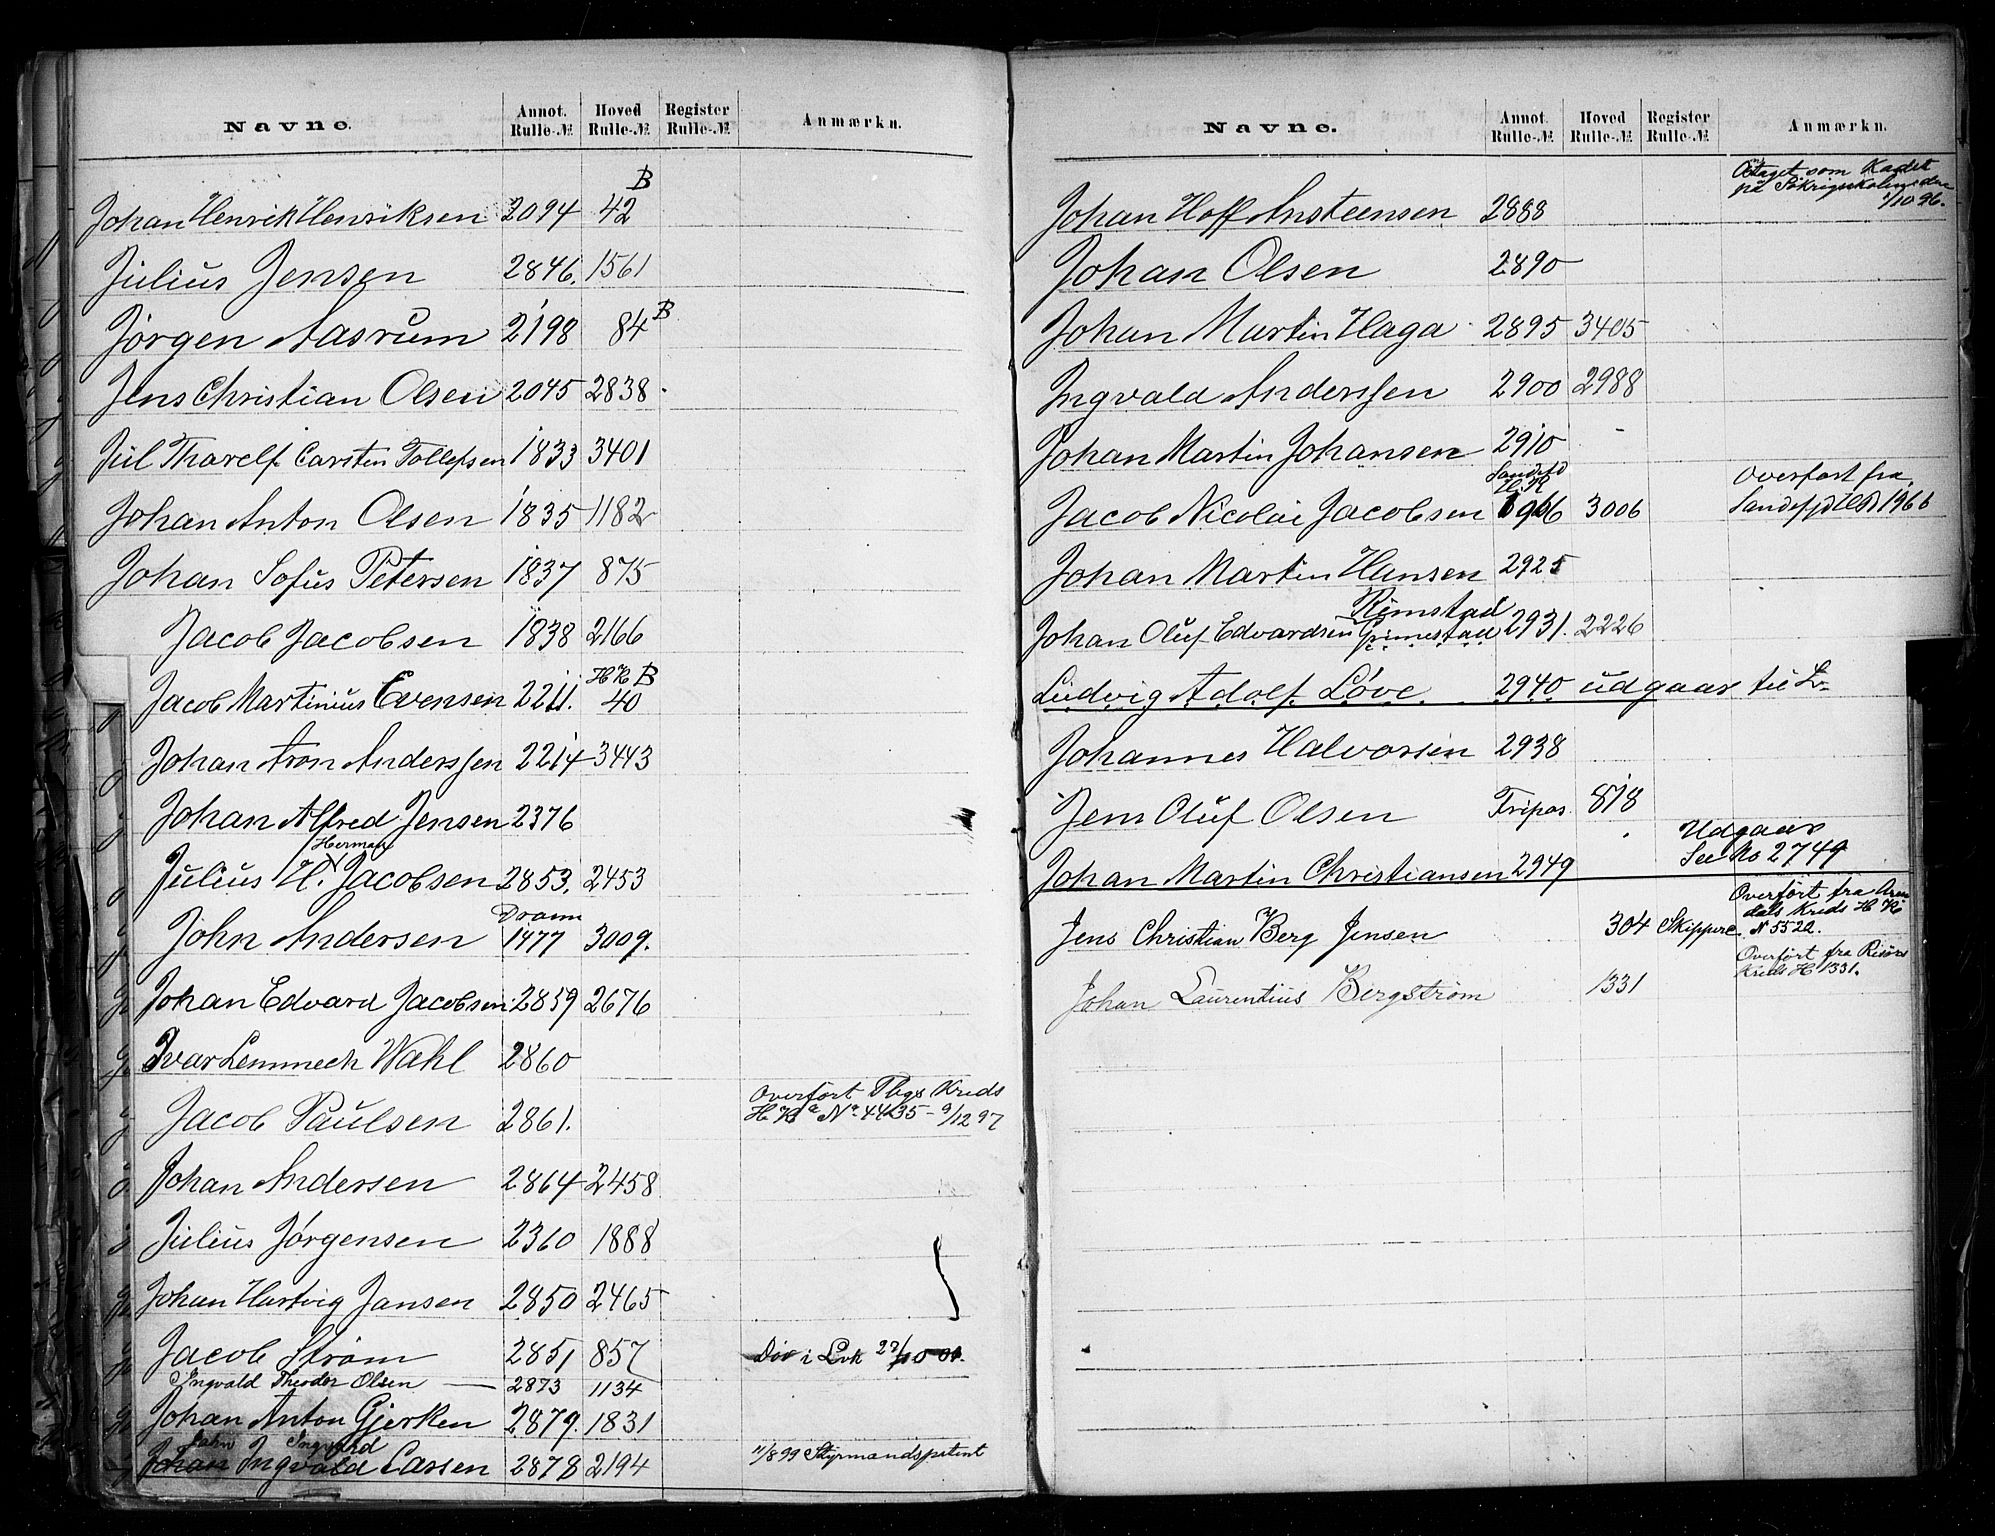 Navne. Annot. Rulle-№ Hoved Rulle-№ Register Rulle-№ Anmærkn.
B
Johan Henrik Henriksen 2094 42
Julius Jensen 2846. 1561
Jørgen Aasrum 2198 84 B
Jens Christian Olsen 2045 2838
Jul Thorelf Carsten Tollefsen 1833 3401
Johan Anton Olsen 1835 1182
Johan Sofus Petersen 1837 875
Jacob Jacobsen 1838 2166
HR B
Jacob Martinius Evensen 2211. 40
Johan Aron Anderssen 2214 3443
Johan Alfred Jensen 2376
Herman
Julius H. Jacobsen 2853. 2453
Dramn
John Andersen 1477 3009.
Johan Edvard Jacobsen 2859 2676
Ivar Lemmech Wahl 2860
Overført Tbgs Kreds
Jacob Paulsen 2861. H R a No. 4435 - 9/12 97
Johan Andersen 2864 2458
Julius Jørgensen 2360 1888
Johan Hartvig Jansen 2850 2465
Jacob Strøm 2851 857 Død i Lvk 10 00.
Ingvald Theodor Olsen 2873 1134
Johan Anton Gjerken 2879. 1831
John Ingvald
Johan Ingvald Larsen 2878 2194 11/8 99 Styrmandspatent
Navne. Annot. Rulle-№ Hoved Rulle-№ Register Rulle-№ Anmærkn.
Optaget som Kadet
på Søkrigsskolen den
1/10 96.
Johan Hoff Ansteensen 2888
Johan Olsen 2890
Johan Martin Haga 2895 3405
Ingvald Anderssen 2900 2988
Johan Martin Johansen 2910
Sandefd H.R Overført fra
Jacob Nicolai Jacobsen 1966 3006 Sandefjd HR 1966
Johan Martin Hansen 2925
Rimstad
Johan Oluf Edvardsen Grimestad 2931. 2226
Ludvig Adolf Løve 2940 udgaar til L
Johannes Halvorsen 2938
Jens Oluf Olsen Tripos. 818
Udgaar
Johan Martin Christiansen 2949 See No 2749
Overført fra Aren
dals Kreds H R
Jens Christian Berg Jensen 304 Skippere N 5522.
Overført fra Risørs
Kreds H 1331.
Johan Laurentius Bergstrøm 1331